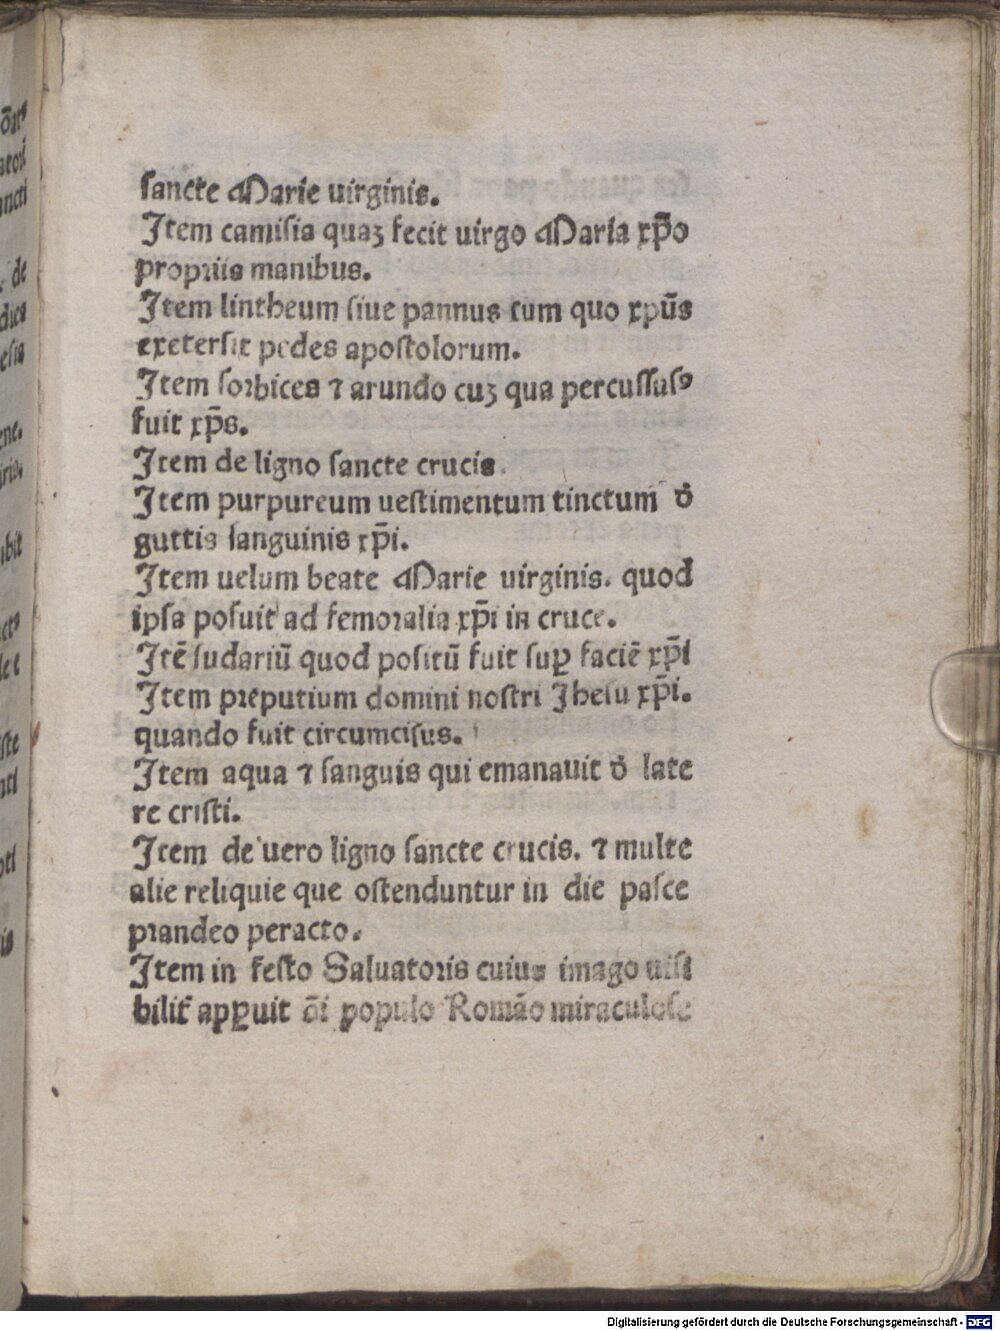 sancte Marie uirginis.
Item camisia quaꝫ fecit uirgo Maria xp̄o
propriis manibus.
Item lintheum siue pannus cum quo xpūs
exetersit pedes apostolorum.
Item sorbices ⁊ arundo cuꝫ qua percussusꝰ
fuit xp̄s.
Item de ligno sancte crucis.
Item purpureum uestimentum tinctum d̄
guttis sanguinis xp̄i.
Item uelum beate Marie uirginis. quod
ipsa posuit ad femoralia xp̄i in cruce.
Itē sudariū quod positū fuit suꝑ faciē xp̄i
Item preputium domini nostri Jhesu xp̄i.
quando fuit circumcisus.
Item aqua ⁊ sanguis qui emanauit d̄ late
re cristi.
Item de uero ligno sancte crucis. ⁊ multe
alie reliquie que ostenduntur in die pasce
prandeo peracto.
Item in festo Saluatoris cuius imago uisi
bilit̄ apꝑuit ōi populo Romāo miraculose
Digitalisierung gefördert durch die Deutsche Forschungsgemeinschaft - DFG